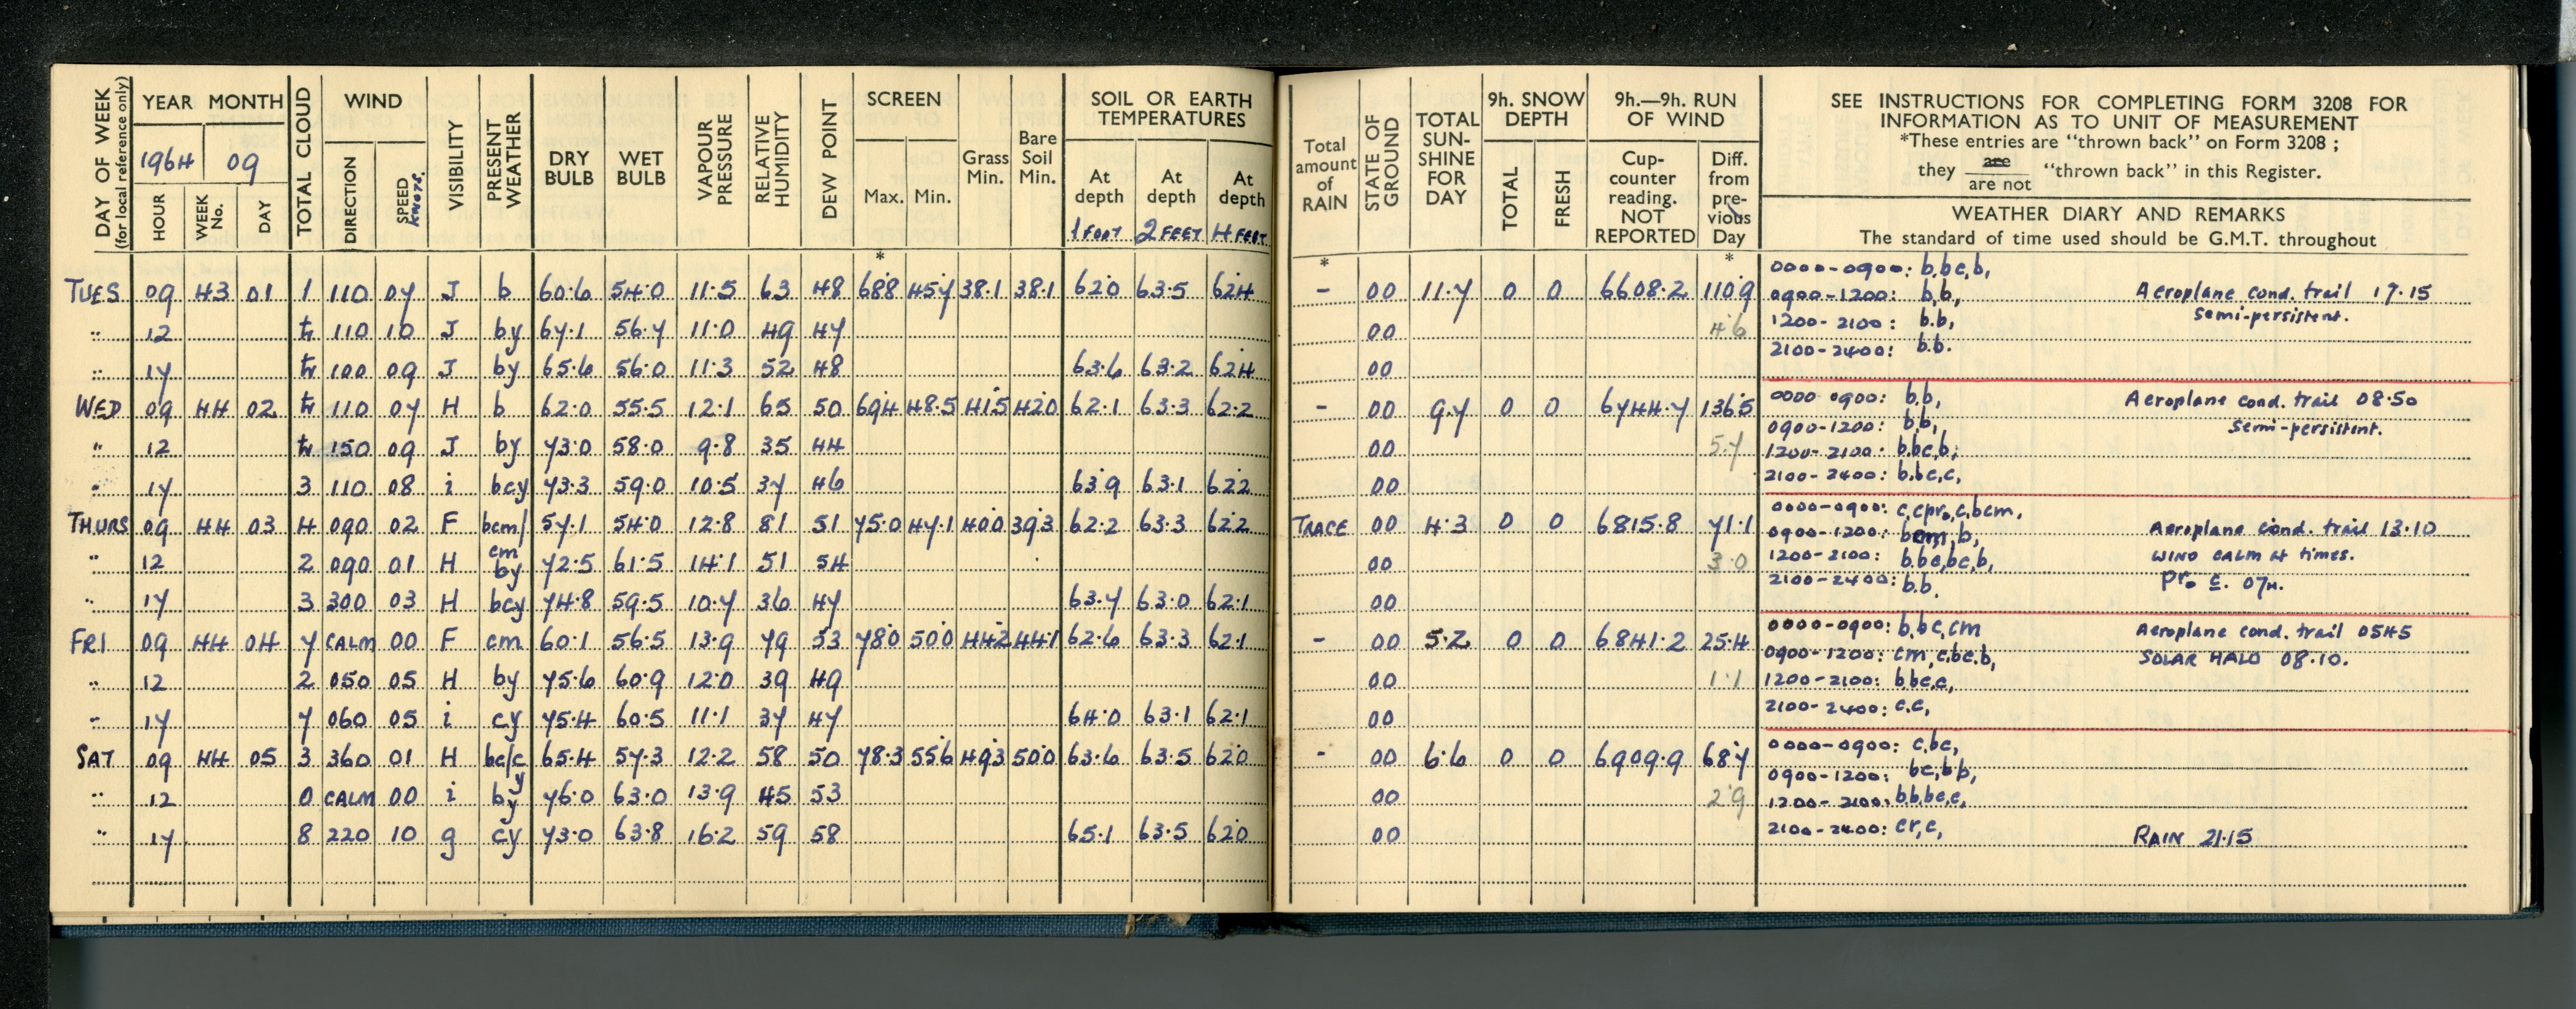 DAY OF WEEK (for local reference only) YEAR MONTH TOTAL CLOUD WIND VISIBILITY PRESENT WEATHER DRY BULB WET BULB VAPOUR PRESSURE RELATIVE HUMIDITY DEW POINT SCREEN Grass Min. Bare Soil Min. SOIL OR EARTH TEMPERATURES
1964 09
HOUR WEEK No. DAY DIRECTION SPEED KNOTS. Max. Min. At depth At depth At depth
1 FOOT 2 FEET 4 FEET
*
TUES 09 43 01 1 110 07 J b 60.6 54.0 11.5 63 48 68.8 45.7 38.1 38.1 62.0 63.5 62.4
" 12 tr 110 10 J by 67.1 56.7 11.0 49 47
" 17 tr 100 09 J by 65.6 56.0 11.3 52 48 63.6 63.2 62.4
WED 09 44 02 tr 110 07 H b 62.0 55.5 12.1 65 50 69.4 48.5 41.5 42.0 62.1 63.3 62.2
" 12 tr 150 09 J by 73.0 58.0 9.8 35 44
" 17 3 110 08 i bcy 73.3 59.0 10.5 37 46 63.9 63.1 62.2
THURS 09 44 03 4 090 02 F bcm/ 57.1 54.0 12.8 81 51 75.0 47.1 40.0 39.3 62.2 63.3 62.2
" 12 2 090 01 H cm by 72.5 61.5 14.1 51 54
" 17 3 300 03 H bcy 74.8 59.5 10.7 36 47 63.7 63.0 62.1
FRI 09 44 04 7 CALM 00 F cm 60.1 56.5 13.9 79 53 78.0 50.0 44.2 44.1 62.6 63.3 62.1
" 12 2 050 05 H by 75.6 60.9 12.0 39 49
" 17 7 060 05 i cy 75.4 60.5 11.1 37 47 64.0 63.1 62.1
SAT 09 44 05 3 360 01 H bc/cy 65.4 57.3 12.2 58 50 78.3 55.6 49.3 50.0 63.6 63.5 62.0
" 12 0 CALM 00 i by 76.0 63.0 13.9 45 53
" 17 8 220 10 g cy 73.0 63.8 16.2 59 58 65.1 63.5 62.0
Total amount of RAIN STATE OF GROUND TOTAL SUN-SHINE FOR DAY 9h. SNOW DEPTH 9h.—9h. RUN OF WIND
TOTAL FRESH Cup-counter reading. NOT REPORTED Diff. from pre-vious Day
SEE INSTRUCTIONS FOR COMPLETING FORM 3208 FOR
INFORMATION AS TO UNIT OF MEASUREMENT
*These entries are "thrown back" on Form 3208 ;
they are / are not "thrown back" in this Register.
WEATHER DIARY AND REMARKS
The standard of time used should be G.M.T. throughout
* *
- 00 11.7 0 0 6608.2 110.9
00 4.6
00
0000-0900: b,bc,b,
0900-1200: b,b, Aeroplane cond. trail 17.15
1200-2100: b.b, semi-persistent.
2100-2400: b.b.
- 00 9.7 0 0 6744.7 136.5
00 5.7
00
0000 0900: b.b, Aeroplane cond. trail 08.50
0900-1200: b.b, semi-persistent.
1200-2100: b.bc,b;
2100-2400: b.bc,c,
TRACE 00 4.3 0 0 6815.8 71.1
00 3.0
00
0000-0900: c,cpro,c,bcm,
0900-1200: bcm,b, Aeroplane cond. trail 13.10
1200-2100: b.bc,bc,b, WIND CALM at times.
2100-2400: b.b. pro c. 07H.
- 00 5.2 0 0 6841.2 25.4
00 1.1
00
0000-0900: b,bc,cm Aeroplane cond. trail 0545
0900-1200: cm,c.bc.b, SOLAR HALO 08.10.
1200-2100: b.bc.c,
2100-2400: c.c,
- 00 6.6 0 0 6909.9 68.7
00 2.9
00
0000-0900: c,bc,
0900-1200: bc,b,b,
1200-2100: b.b,bc,c,
2100-2400: cr,c, RAIN 21.15